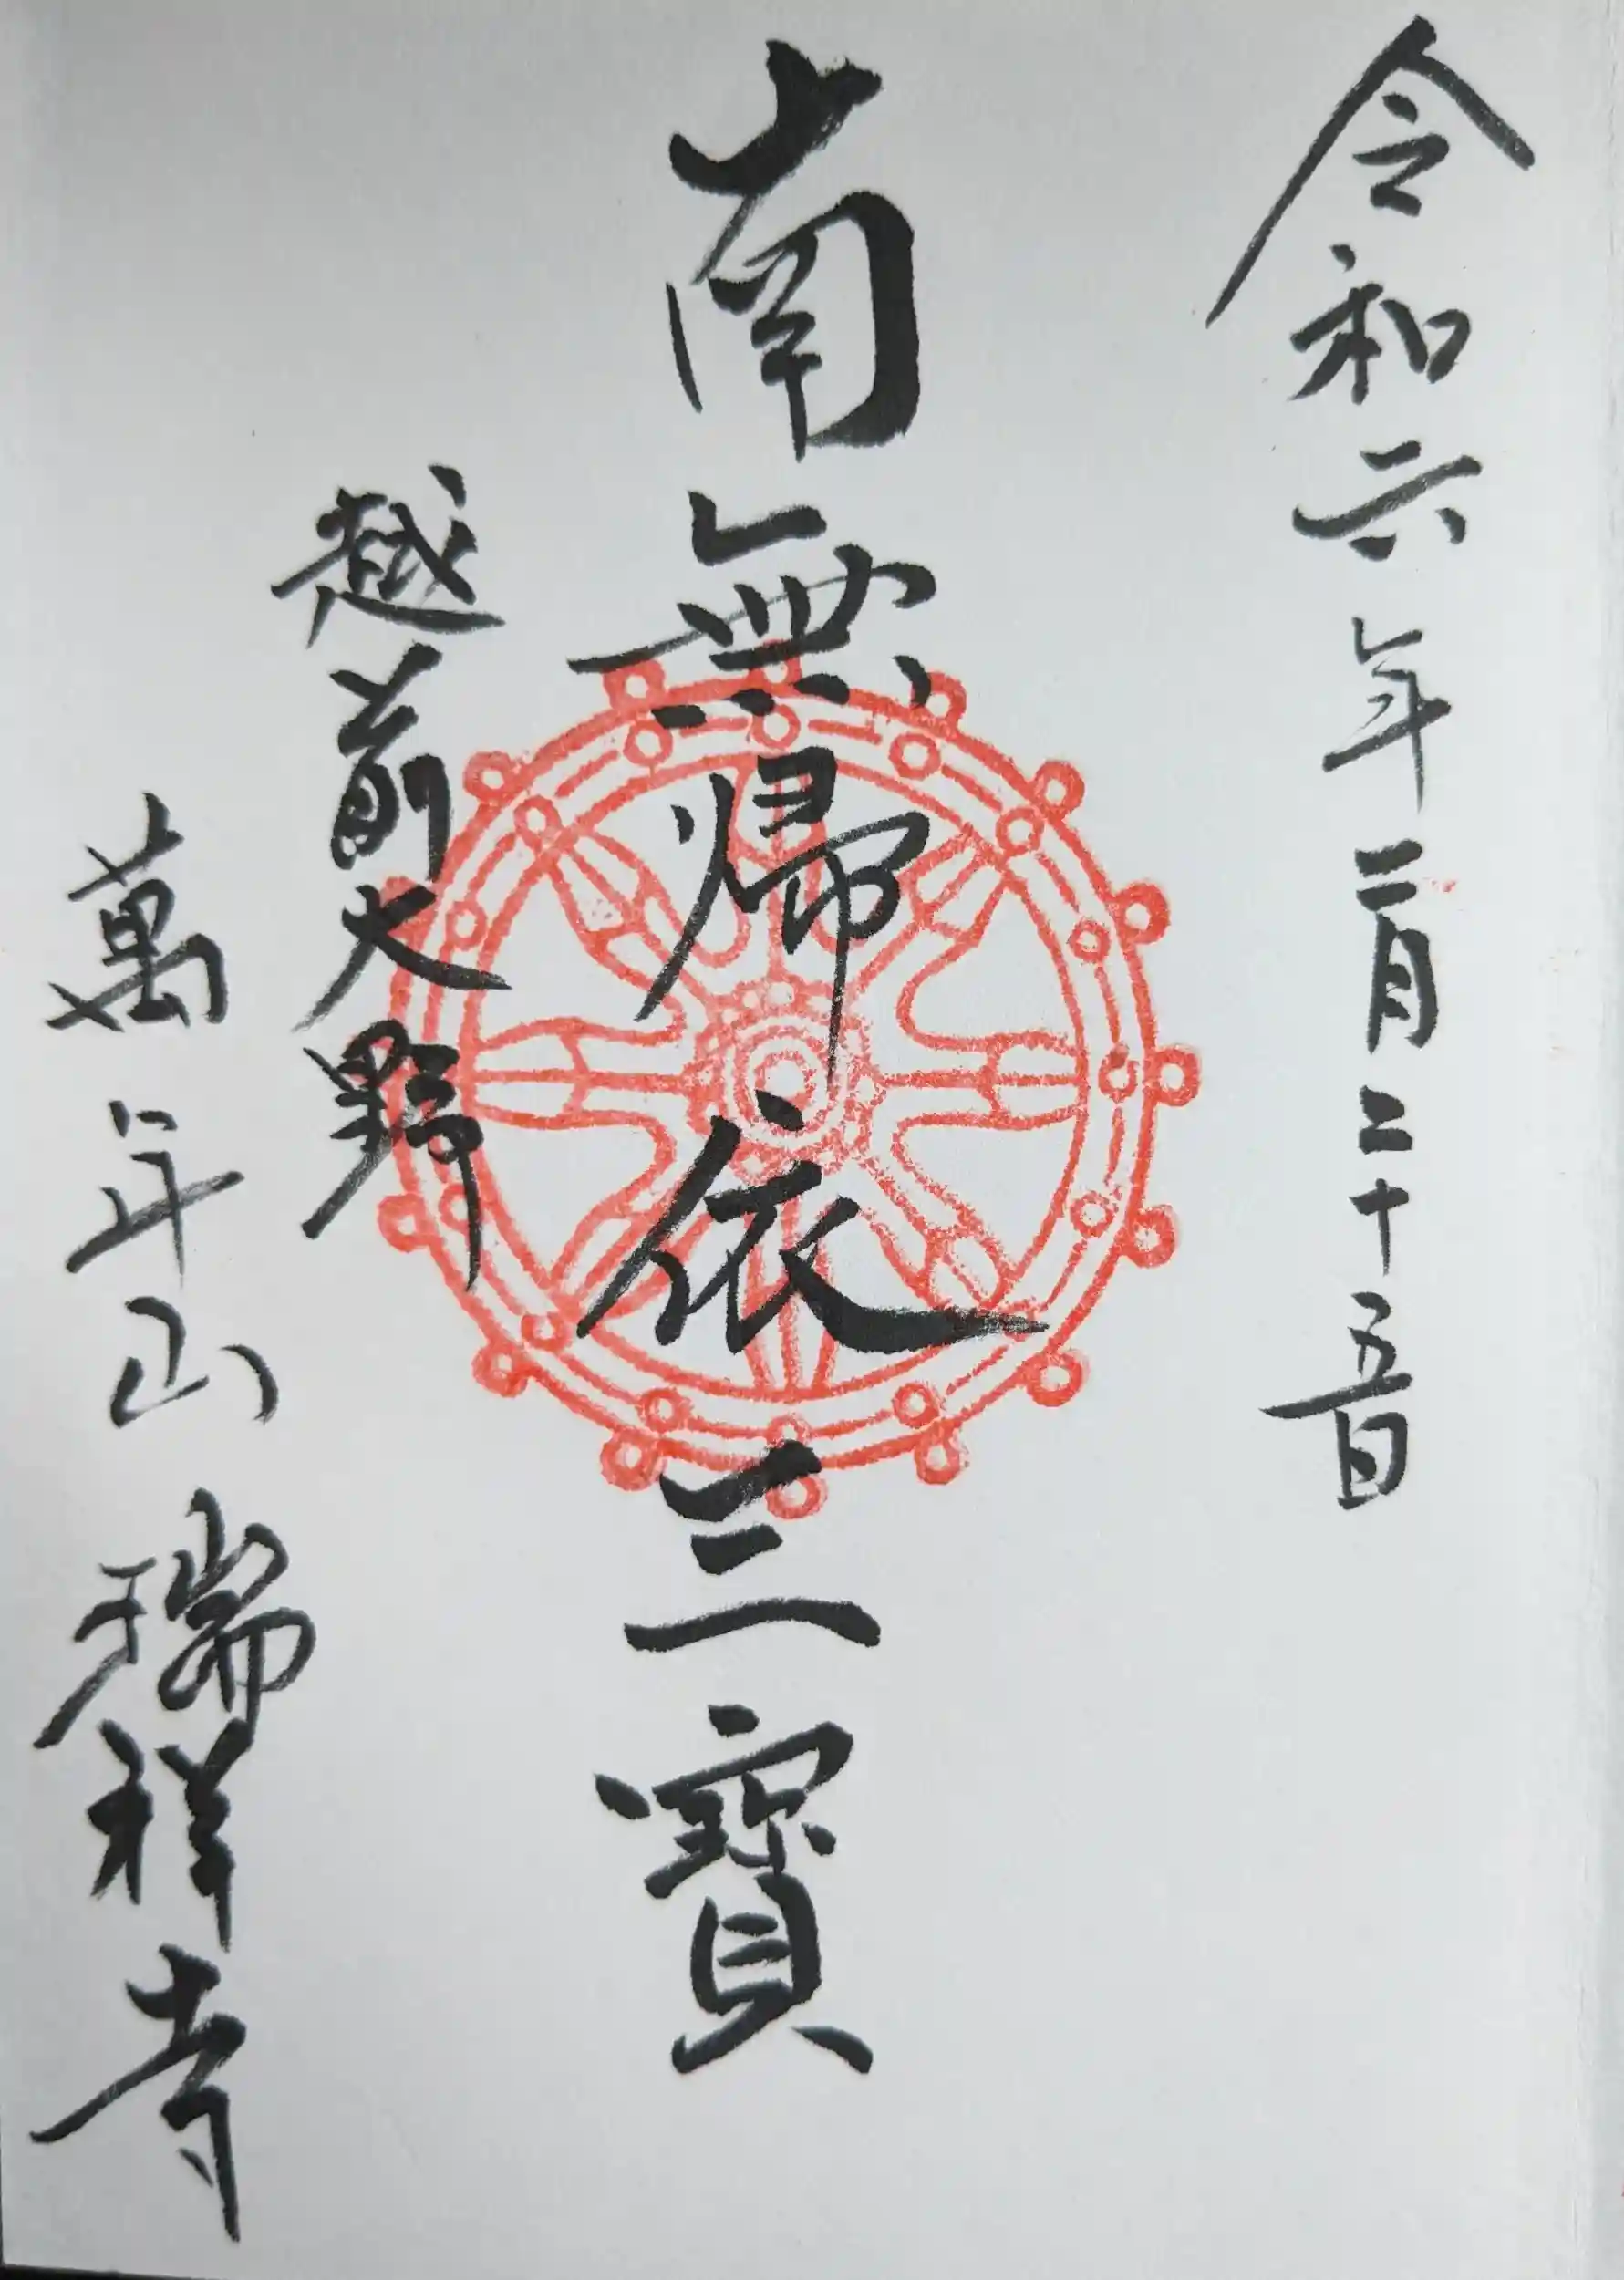 令和六年二月二十五日
南無帰依三寶
越前大野
萬年山 瑞祥寺